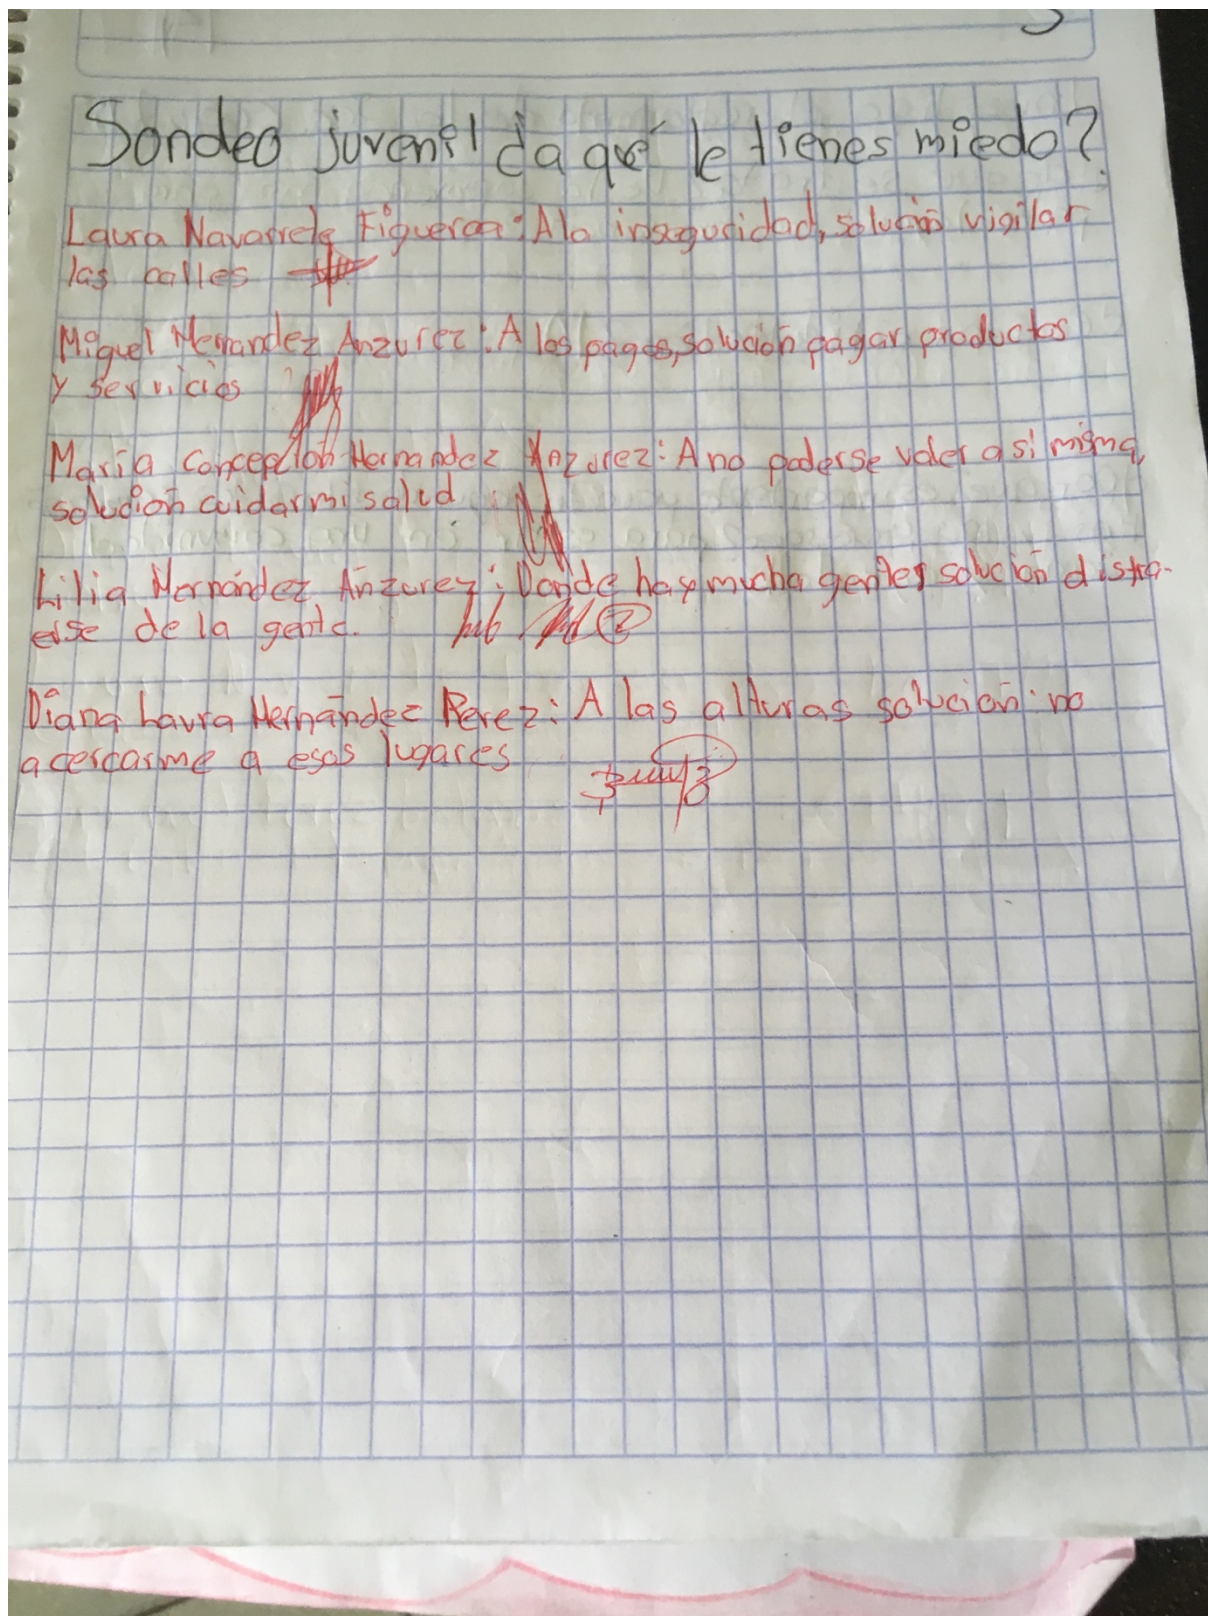 Sondeo juvenil ¿a qué le tienes miedo?
Laura Navarrete Figueroa: A la inseguridad, solución vigilar
las calles
Miguel Hernandez Anzurez: A los pagos, solución pagar productos
y servicios
María Concepción Hernandez Anzurez: A no poderse valer a si misma,
solución cuidar mi salud
Lilia Hernández Anzurez: Donde hay mucha gente, solución distra-
erse de la gente.
Diana Laura Hernández Perez: A las alturas solución: no
acercarme a esos lugares